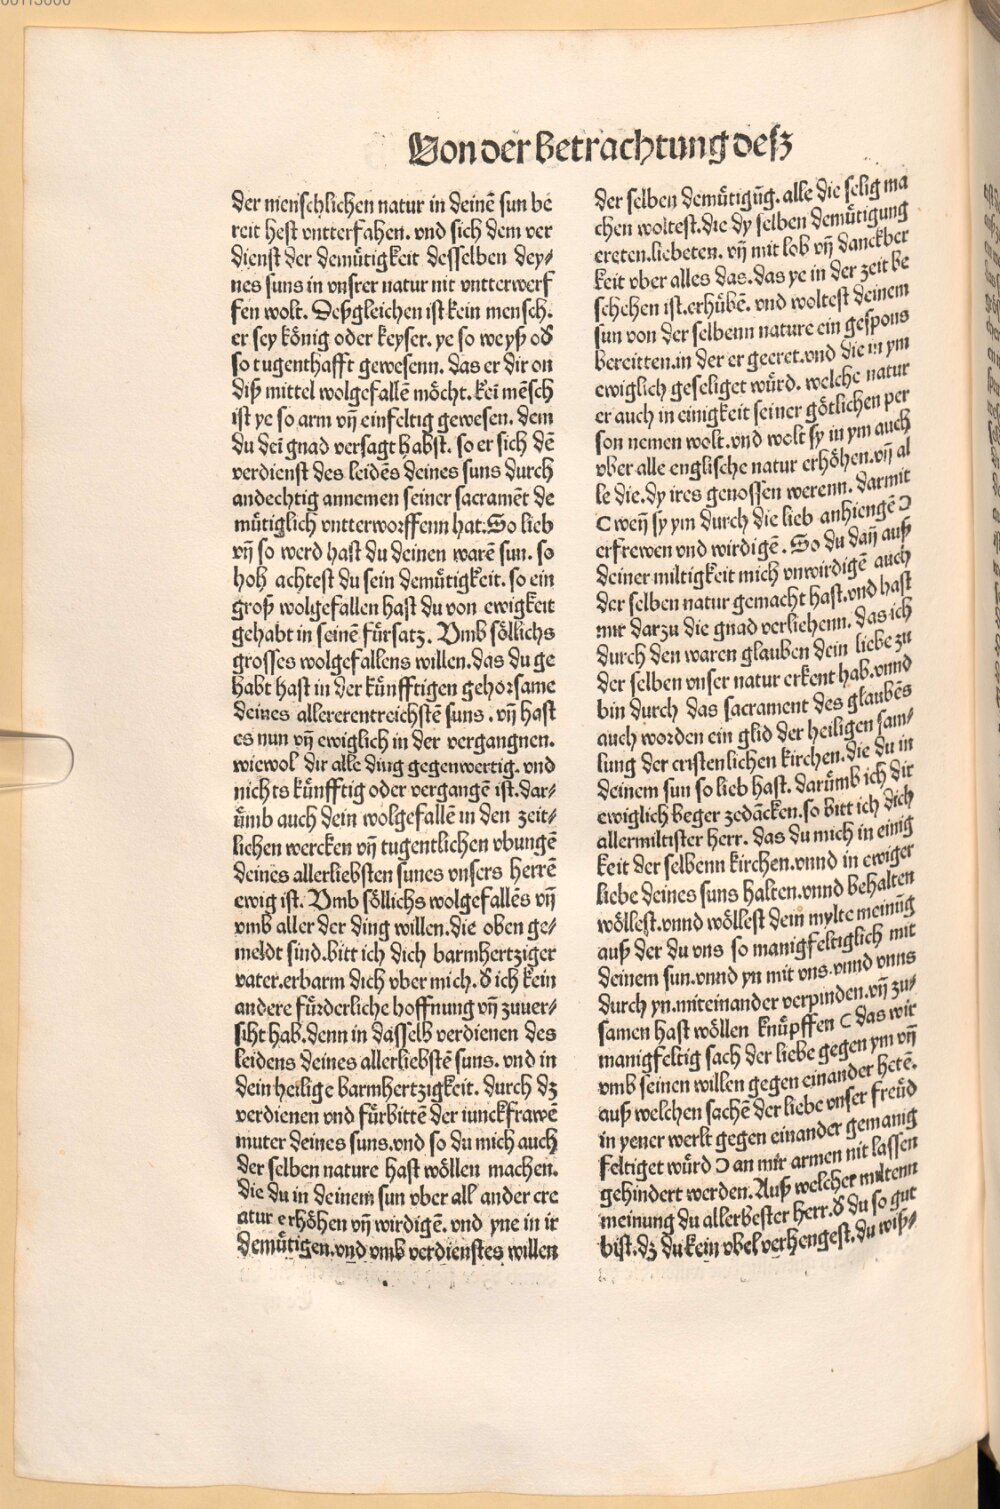 Von der Betrachtung deß
der menschlichen natur in deinē sun be
reit hest vntterfahen. vnd sich dem ver
dienst der demütigkeit desselben dey⸗
nes suns in vnsrer natur nit vntterwerf
fen wolt. Deßgleichen ist kein mensch.
er sey könig oder keyser. ye so weyß oď
so tugenthafft gewesenn. das er dir on
diß mittel wolgefallē möcht. kei mēsch
ist ye so arm vn̄ einfeltig gewesen. dem
du dei gnad versagt habst. so er sich dē
verdienst des leidēs deines suns durch
andechtig annemen seiner sacramēt de
mütiglich vntterworffenn hat. So lieb
vn̄ so werd hast du deinen warē sun. so
hoh achtest du sein demütigkeit. so ein
groß wolgefallen hast du von ewigkeit
gehabt in seinē fürsatz. Vmb söllichs
grosses wolgefallens willen. das du ge
habt hast in der künfftigen gehorsame
deines allererentreichstē suns . vn̄ hast
es nun vn̄ ewiglich in der vergangnen.
wiewol dir alle ding gegenwertig. vnd
nichts künfftig oder vergangē ist. dar⸗
ümb auch dein wolgefallē in den zeit⸗
lichen wercken vn̄ tugentlichen vbungē
deines allerliebsten sunes vnsers herrē
ewig ist. Vmb söllichs wolgefallēs vn̄
vmb aller der ding willen. die oben ge⸗
meldt sind. bitt ich dich barmhertziger
vater. erbarm dich vber mich. ď ich kein
andere fürderliche hoffnung vn̄ zuuer⸗
siht hab. denn in dasselb verdienen des
leidens deines allerliebstē suns. vnd in
dein heilige barmhertzigkeit. durch dz
verdienen vnd fürbittē der iunckfrawē
muter deines suns. vnd so du mich auch
der selben nature hast wöllen machen.
die du in deinem sun vber all ander cre
atur erhöhen vn̄ wirdigē. vnd yne in ir
demütigen. vnd vmb verdienstes willen
der selben demütigūg. alle die selig ma
chen woltest. die dy selben demütigung
ereten. liebeten. vn̄ mit lob vn̄ danckber
keit vber alles das. das ye in der zeit be
schehen ist. erhübē. vnd woltest deinem
sun von der selbenn nature ein gespons
bereitten. in der er geeret. vnd die in ym
ewiglich geseliget würd. welche natur
er auch in einigkeit seiner götlichen per
son nemen wolt. vnd wolt sy in ym auch
vber alle englische natur erhöhen. vn̄ al
le die. dy ires genossen werenn. darmit
(wen̄ sy ym durch die lieb anhiengē)
erfrewen vnd wirdigē. So du dan̄ auß
deiner miltigkeit mich vnwirdigē auch
der selben natur gemacht hast. vnd hast
mir darzu die gnad verliehenn. das ich
durch den waren glauben dein liebe zu
der selben vnser natur erkent hab. vnnd
bin durch das sacrament des glaubēs
auch worden ein glid der heiligen sam⸗
lung der cristenlichen kirchen. die du in
deinem sun so lieb hast. darümb ich dir
ewiglich beger zedācken. so bitt ich dich
allermiltister herr. das du mich in einig
keit der selbenn kirchen. vnnd in ewiger
liebe deines suns halten. vnnd behalten
wöllest. vnnd wöllest dein mylte meinūg
auß der du vns so manigfeltiglich mit
deinem sun. vnnd yn mit vns. vnnd vnns
durch yn. miteinander verpinden. vn̄ zu⸗
samen hast wöllen knüpffen (das wir
manigfeltig sach der liebe gegen ym vn̄
vmb seinen willen gegen einander hetē.
auß welchen sachē der liebe vnser freüd
in yener werlt gegen einander gemanig
feltiget würd) an mir armen nit lassen
gehindert werden. Auß welcher miltenn
meinung du allerbester herr. ď du so gut
bist. dz du kein vbel verhengest. du wiß⸗